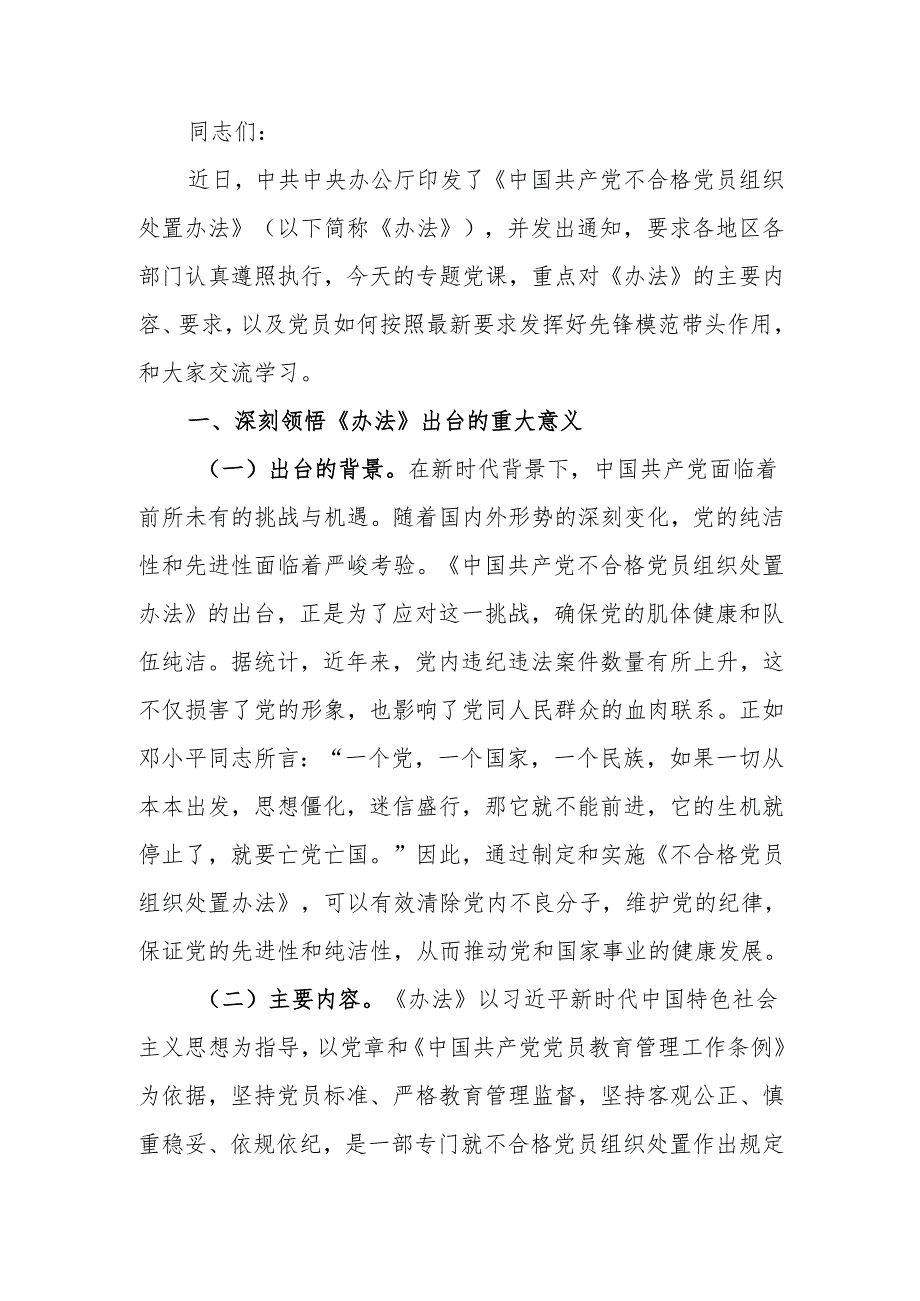 同志们：
近日，中共中央办公厅印发了《中国共产党不合格党员组织
处置办法》（以下简称《办法》），并发出通知，要求各地区各
部门认真遵照执行，今天的专题党课，重点对《办法》的主要内
容、要求，以及党员如何按照最新要求发挥好先锋模范带头作用，
和大家交流学习。
一、深刻领悟《办法》出台的重大意义
（一）出台的背景。在新时代背景下，中国共产党面临着
前所未有的挑战与机遇。随着国内外形势的深刻变化，党的纯洁
性和先进性面临着严峻考验。《中国共产党不合格党员组织处置
办法》的出台，正是为了应对这一挑战，确保党的肌体健康和队
伍纯洁。据统计，近年来，党内违纪违法案件数量有所上升，这
不仅损害了党的形象，也影响了党同人民群众的血肉联系。正如
邓小平同志所言：“一个党，一个国家，一个民族，如果一切从
本本出发，思想僵化，迷信盛行，那它就不能前进，它的生机就
停止了，就要亡党亡国。”因此，通过制定和实施《不合格党员
组织处置办法》，可以有效清除党内不良分子，维护党的纪律，
保证党的先进性和纯洁性，从而推动党和国家事业的健康发展。
（二）主要内容。《办法》以习近平新时代中国特色社会
主义思想为指导，以党章和《中国共产党党员教育管理工作条例》
为依据，坚持党员标准、严格教育管理监督，坚持客观公正、慎
重稳妥、依规依纪，是一部专门就不合格党员组织处置作出规定